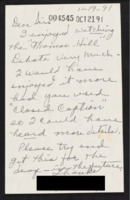 10-19-91
Dear Sir
001545 OCT 21 91
I enjoyed watching
the "Thomas-Hill"
Debate very much -
I would have
enjoyed it more
had you used
"Closed Caption"
so I could have
heard more details.
Please try and
get this for the
deaf in the future